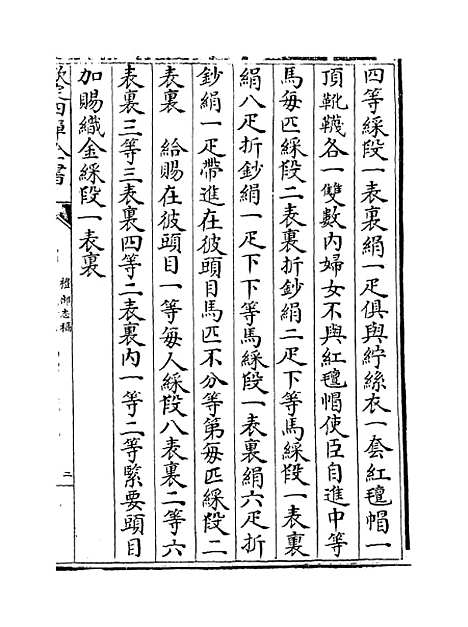 四等綵段一表裏絹一疋俱與紵絲衣一套紅氊帽一
頂靴韈各一雙數内婦女不與紅氊帽使臣自進中等
馬每匹綵段二表裏折鈔絹二疋下等馬綵段一表裏
絹八疋折鈔絹一疋下下等馬綵段一表裏絹六疋折
鈔絹一疋帶進在彼頭目馬匹不分等第每匹綵段二
表裏　給賜在彼頭目一等每人綵段八表裏二等六
表裏三等三表裏四等二表裏内一等二等緊要頭目
加賜織金綵段一表裏
欽定四庫全書
禮部志稿
二